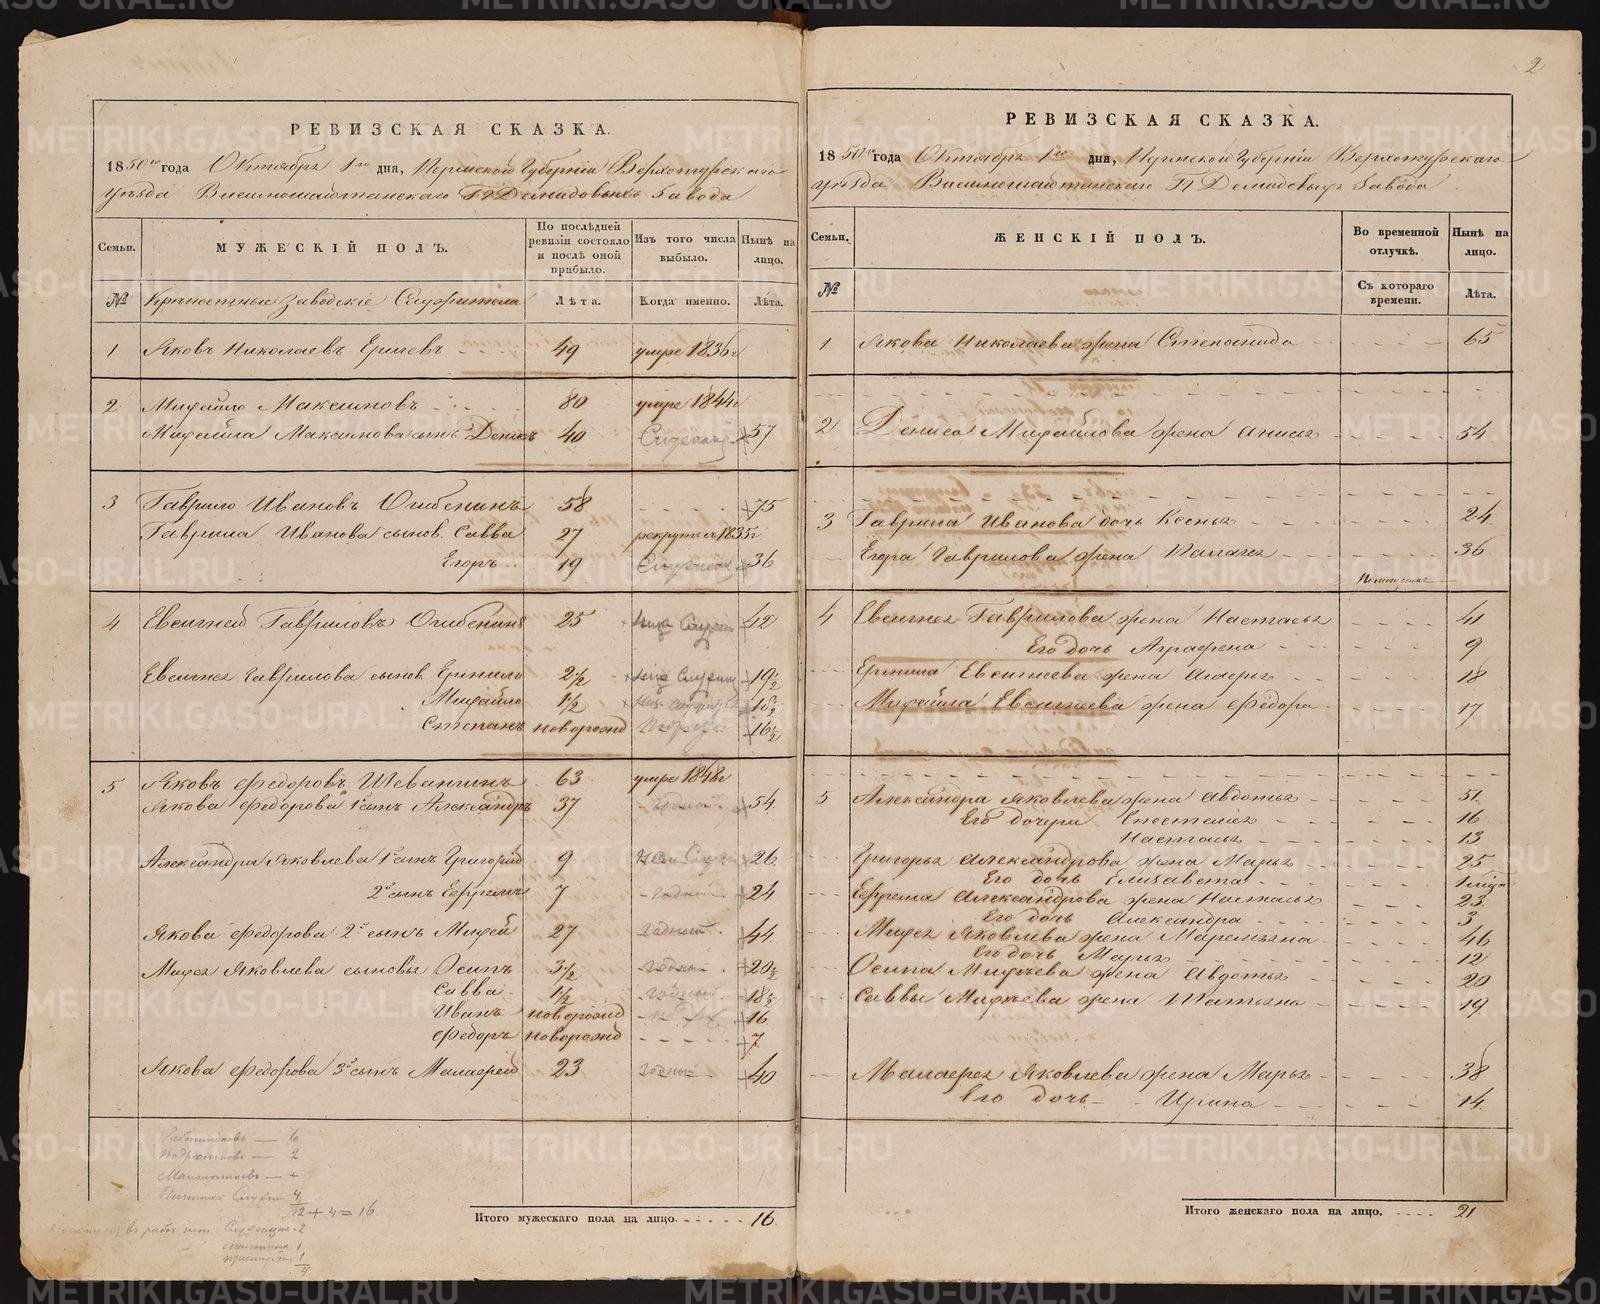 2
РЕВИЗСКАЯ СКАЗКА.
1850го года Октября 1го дня, Пермской Губерніи Верхотурскаго
уѣзда Висимошайтанскаго Г: Демидовыхъ Завода
Семьи.
МУЖЕСКІЙ ПОЛЪ.
По послѣдней ревизіи состояло и послѣ оной прибыло.
Изъ того числа выбыло.
Нынѣ на лицо.
№ Крѣпостные Заводскіе Служители
Лѣта.
Когда именно.
Лѣта.
1 Яковъ Николаевъ Ершевъ 49 умре 1836г
2 Михайло Максимовъ 80 умре 1844г
Михайла Максимова сынъ Денисъ 40 57
3 Гаврило Ивановъ Ошбенинъ 58 75
Гаврила Иванова сынов. Савва 27 рекрутъ съ 1835г
Егоръ 19 36
4 Евсигней Гавриловъ Ошбенинъ 25 42
Евсигнея Гаврилова сынов. Ермило 2 1/2 19 1/2
Михайло 1 1/2 18 1/2
Степанъ новорожд 16 1/2
5 Яковъ Федоровъ Шеванинъ 63 умре 1848г
Якова Федорова 1й сынъ Александръ 37 годной 54
Александра Яковлева 1й сынъ Григорій 9 26
2й сынъ Ефремъ 7 годный 24
Якова Федорова 2й сынъ Михей 27 годный 44
Михея Яковлева сыновья Осипъ 3 1/2 годный 20 1/2
Савва 1 1/2 годный 18 1/2
Иванъ новорожд 16
Федоръ новорожд 7
Якова Федорова 3й сынъ Малафей 23 годный 40
Работниковъ — 6
Подростковъ — 2
12 + 4 = 16
Итого мужескаго пола на лицо. 16
РЕВИЗСКАЯ СКАЗКА.
1850го года Октября 1го дня, Пермской Губерніи Верхотурскаго
уѣзда Висимошайтанскаго Г: Демидовыхъ Завода
Семьи.
ЖЕНСКІЙ ПОЛЪ.
Во временной отлучкѣ.
Нынѣ на лицо.
№
Съ котораго времени.
Лѣта.
1 Якова Николаева жена Степанида 65
2 Дениса Михайлова жена Анисья 54
3 Гаврила Иванова дочь Ксенья 24
Егора Гаврилова жена Палагея 36
4 Евсигнея Гаврилова жена Настасья 41
Его дочь Аграфена 9
Ермила Евсигнеева жена 18
Михайла Евсигнеева жена Федора 17
5 Александра Яковлева жена Авдотья 51
Его дочери 16
Настасья 13
Григорья Александрова жена Марья 25
Его дочь Елизавета
Ефрема Александрова жена Настасья 23
Его дочь Александра 3
Михея Яковлева жена Маремьяна 46
Его дочь Марья 12
Осипа Михѣева жена Авдотья 20
Саввы Михѣева жена Татьяна 19
Малафея Яковлева жена Марья 38
Его дочь Ирина 14
Итого женскаго пола на лицо. 21
METRIKI.GASO-URAL.RU